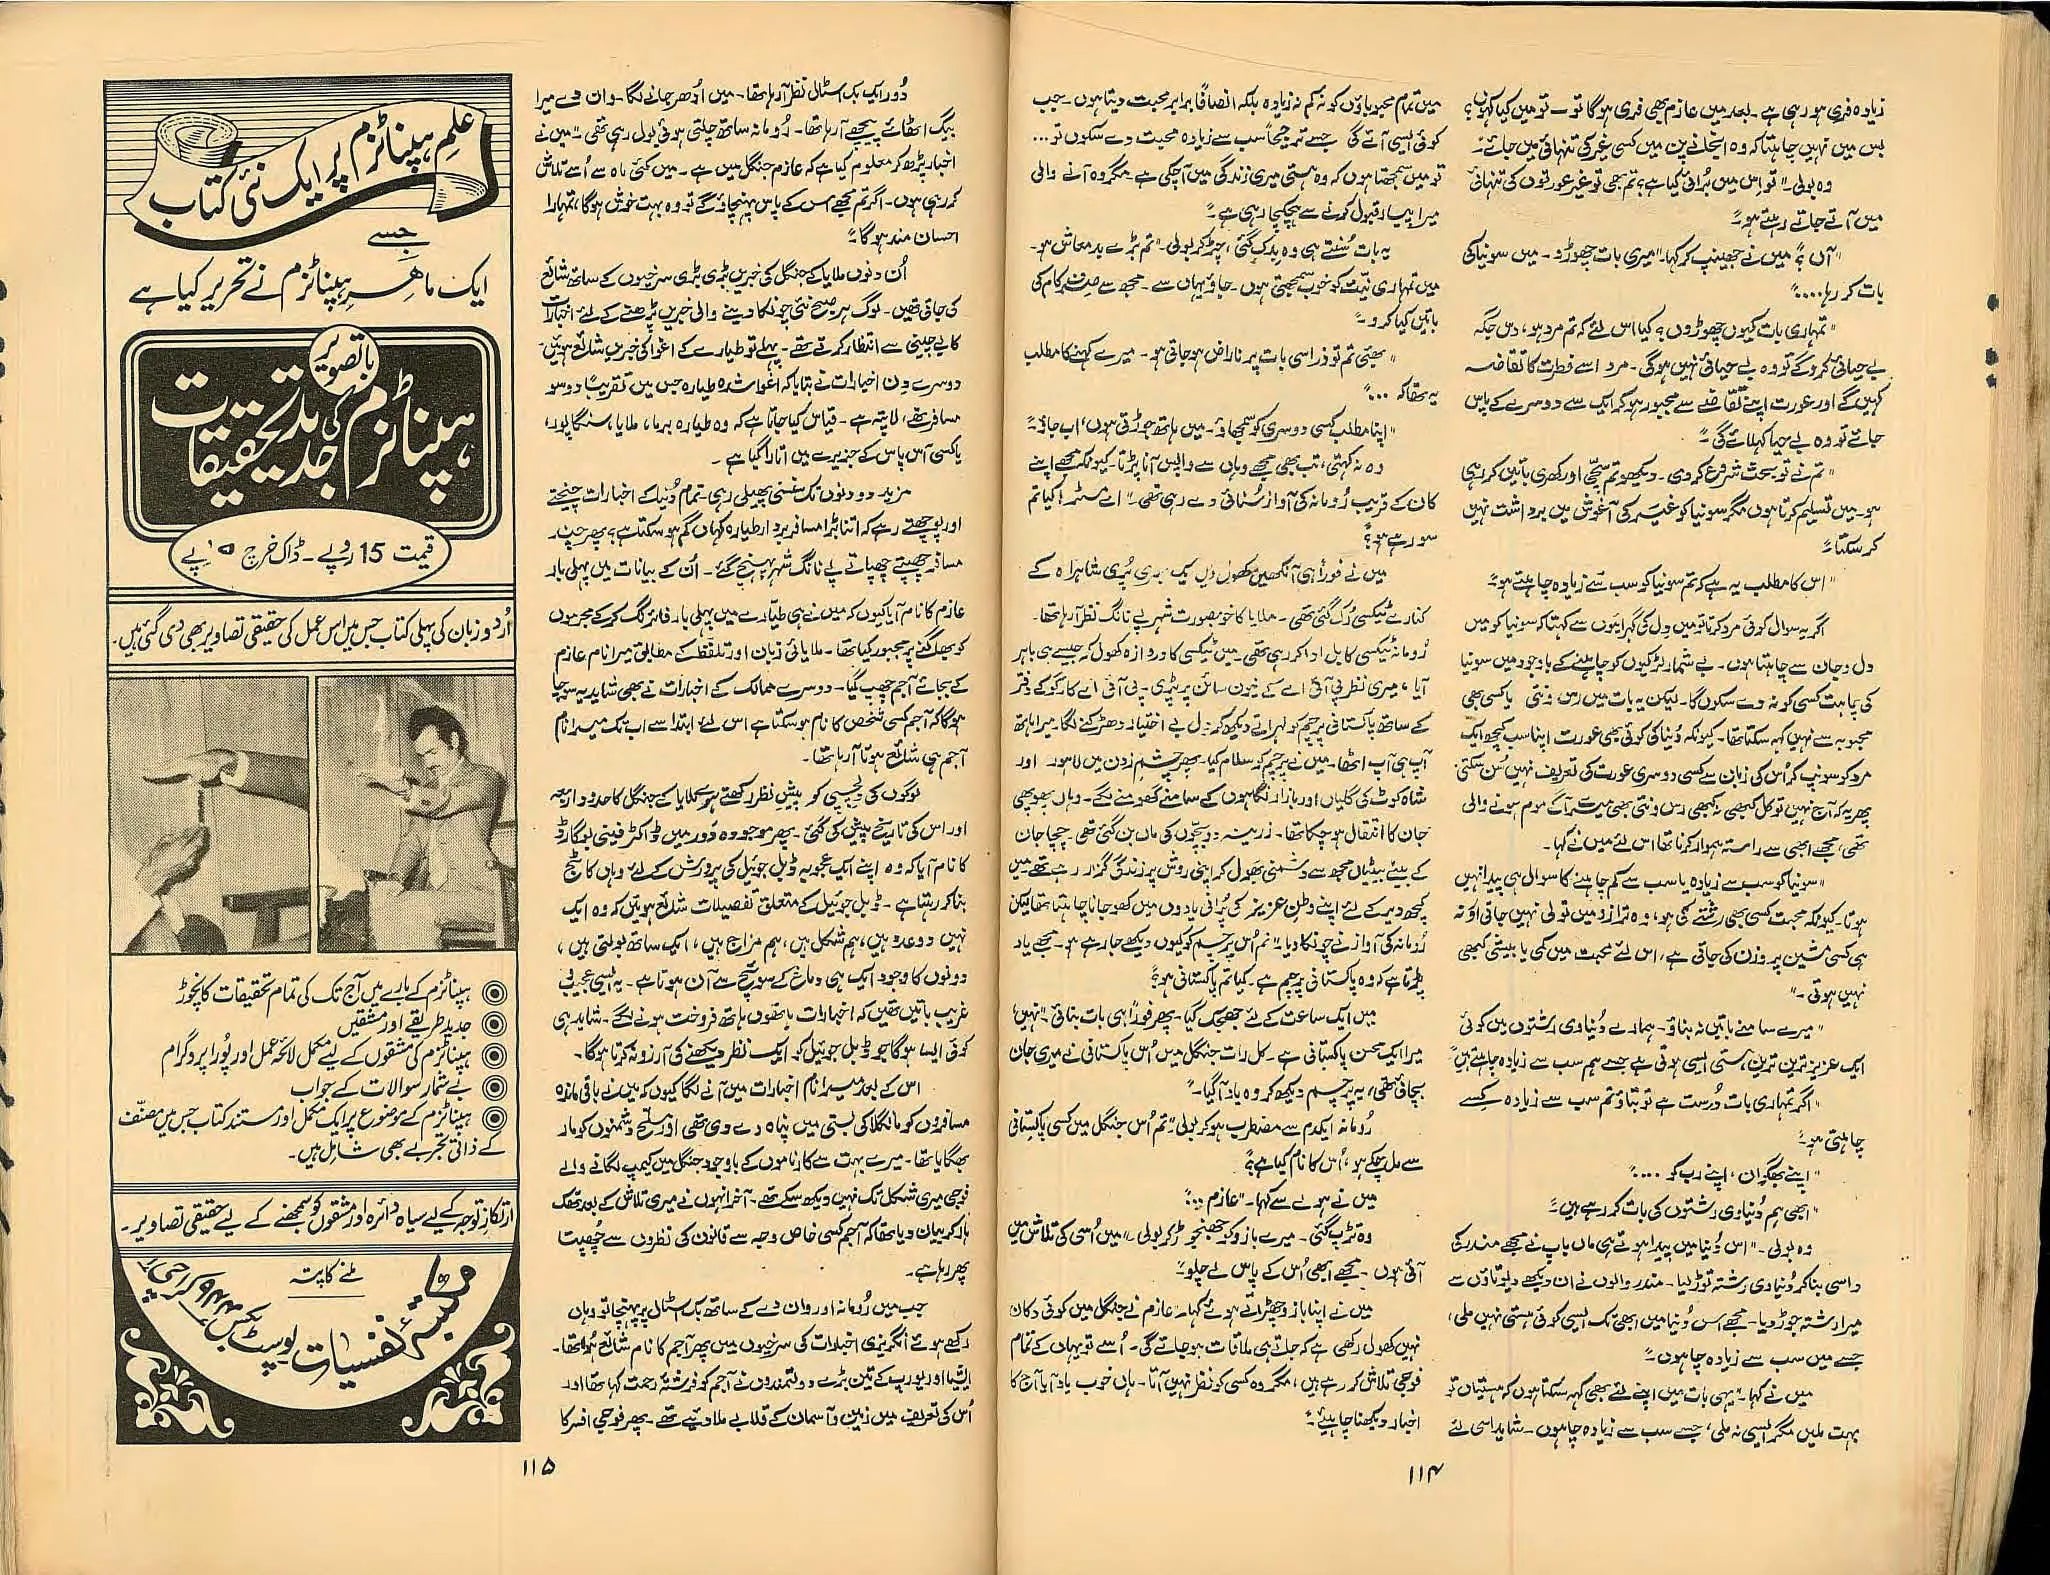 زیادہ فری ہو رہی ہے۔ بعد میں عازم بھی فری ہوگا تو۔ تو میں کیا کہوں؟
بس میں نہیں چاہتا کہ وہ انجانے پن میں کسی غیر کی تنہائی میں جائے۔"
وہ بولی۔ "تو اس میں بُرائی کیا ہے؟ تم بھی تو غیر عورتوں کی تنہائی
میں آتے جاتے رہتے ہو۔"
"آں؟" میں نے جھینپ کر کہا۔ "میری بات چھوڑو۔ میں سونیا کی
بات کر رہا...."
"تمہاری بات کیوں چھوڑوں؟ کیا اس لئے کہ تم مرد ہو، دس جگہ
بے حیائی کرو گے تو وہ بے حیائی نہیں ہوگی۔ مرد اسے فطرت کا تقاضہ
کہیں گے اور عورت اپنے تقاضے سے مجبور ہو کر ایک سے دوسرے کے پاس
جائے تو وہ بے حیا کہلائے گی۔"
"تم نے تو بحث شروع کر دی۔ دیکھو تم سچی اور کھری باتیں کر رہی
ہو۔ میں تسلیم کرتا ہوں مگر سونیا کو غیر کی آغوش میں برداشت نہیں
کر سکتا۔"
"اس کا مطلب یہ ہے کہ تم سونیا کو سب سے زیادہ چاہتے ہو۔"
اگر یہ سوال کوئی مرد کرتا تو میں دل کی گہرائیوں سے کہتا کہ سونیا کو میں
دل و جان سے چاہتا ہوں۔ بے شمار لڑکیوں کو چاہنے کے باوجود میں سونیا
کی چاہت کسی کو نہ دے سکوں گا۔ لیکن یہ بات میں رس ونتی یا کسی بھی
محبوبہ سے نہیں کہہ سکتا تھا۔ کیونکہ دُنیا کی کوئی بھی عورت اپنا سب کچھ ایک
مرد کو سونپ کر اُس کی زبان سے کسی دوسری عورت کی تعریف نہیں سُن سکتی
پھر یہ کہ آج نہیں تو کل کبھی نہ کبھی رس ونتی بھی میرے آگے موم ہونے والی
تھی، مجھے ابھی سے راستہ ہموار کرنا تھا اس لئے میں نے کہا۔
"سونیا کو سب سے زیادہ یا سب سے کم چاہنے کا سوال ہی پیدا نہیں
ہوتا۔ کیونکہ محبت کسی بھی رشتے کی ہو، وہ ترازو میں تولی نہیں جاتی اور نہ
ہی کسی مشین پر وزن کی جاتی ہے، اس لئے محبت میں کمی یا بیشی کبھی
نہیں ہوتی۔"
"میرے سامنے باتیں نہ بناؤ۔ ہمارے دُنیاوی رشتوں میں کوئی
ایک عزیز ترین ہستی ایسی ہوتی ہے جسے ہم سب سے زیادہ چاہتے ہیں"
"اگر تمہاری بات دُرست ہے تو بتاؤ تم سب سے زیادہ کِسے
چاہتی ہو۔"
"اپنے بھگوان، اپنے رب کو...."
"ابھی ہم دُنیاوی رشتوں کی بات کر رہے ہیں۔"
وہ بولی۔ "اس دُنیا میں پیدا ہوتے ہی ماں باپ نے مجھے مندر کی
داسی بنا کر دُنیاوی رشتہ توڑ لیا۔ مندر والوں نے ان دیکھے دیوتاؤں سے
میرا رشتہ جوڑ دیا۔ مجھے اس دُنیا میں ابھی تک ایسی کوئی ہستی نہیں ملی،
جسے میں سب سے زیادہ چاہوں۔"
میں نے کہا۔ "یہی بات میں اپنے لئے بھی کہہ سکتا ہوں کہ ہستیاں تو
بہت ملیں مگر ایسی نہ ملی، جسے سب سے زیادہ چاہوں۔ شاید اسی لئے
میں تمام محبوباؤں کو نہ کم نہ زیادہ بلکہ انصافاً برابر محبت دیتا ہوں۔ جب
کوئی ایسی آئے گی جسے ترجیحاً سب سے زیادہ محبت دے سکوں تو...
تو میں سمجھتا ہوں کہ وہ ہستی میری زندگی میں آچکی ہے۔ مگر وہ آنے والی
میرا پیار قبول کرنے سے ہچکچا رہی ہے۔"
یہ بات سُنتے ہی وہ بِدک گئی، چڑ کر بولی۔ "تم بڑے بدمعاش ہو۔
میں تمہاری نیت کو خوب سمجھتی ہوں۔ جاؤ یہاں سے۔ مجھ سے صرف کام کی
باتیں کیا کرو۔"
"بھئی تم تو ذرا سی بات پر ناراض ہو جاتی ہو۔ میرے کہنے کا مطلب
یہ تھا کہ..."
"اپنا مطلب کسی دوسری کو سمجھاؤ۔ میں ہاتھ جوڑتی ہوں، اب جاؤ۔"
وہ نہ کہتی، تب بھی مجھے وہاں سے واپس آنا پڑتا۔ کیونکہ مجھے اپنے
کان کے قریب رُومانہ کی آواز سُنائی دے رہی تھی۔ "اے مسٹر! کیا تم
سو رہے ہو؟"
میں نے فوراً ہی آنکھیں کھول دیں ایک بڑی سی شاہراہ کے
کنارے ٹیکسی رُک گئی تھی۔ ملایا کا خوبصورت شہر پے نانگ نظر آرہا تھا۔
رُومانہ ٹیکسی کا بل ادا کر رہی تھی۔ میں ٹیکسی کا دروازہ کھول کر جیسے ہی باہر
آیا، میری نظر پی آئی اے کے نیون سائن پر پڑی۔ پی آئی اے کارگو کے دفتر
کے ساتھ پاکستانی پرچم کو لہراتے دیکھ کر دل بے اختیار دھڑکنے لگا۔ میرا ہاتھ
آپ ہی آپ اٹھا۔ میں نے پرچم کو سلام کیا۔ پھر چشم زدن میں لاہور اور
شاہ کوٹ کی گلیاں اور بازار نگاہوں کے سامنے گھومنے لگے۔ وہاں پھوپھی
جان کا انتقال ہو چکا تھا۔ زرینہ دو بچّوں کی ماں بن گئی تھی۔ چچا جان
کے بیٹے بیٹیاں مجھ سے دشمنی بھول کر اپنی روش پر زندگی گزار رہے تھے۔ میں
کچھ دیر کے لئے اپنے وطن عزیز کی پُرانی یادوں میں کھو جانا چاہتا تھا لیکن
رُومانہ کی آواز نے چونکا دیا۔ "تم اُس پرچم کو کیوں دیکھے جا رہے ہو۔ مجھے یاد
پڑتا ہے کہ وہ پاکستانی پرچم ہے۔ کیا تم پاکستانی ہو؟"
میں ایک ساعت کے لئے جھجک گیا۔ پھر فوراً ہی بات بنائی۔ "نہیں
میرا ایک محسن پاکستانی ہے۔ کل رات جنگل میں اُس پاکستانی نے میری جان
بچائی تھی، یہ پرچم دیکھ کر وہ یاد آگیا۔"
رُومانہ ایکدم سے مضطرب ہو کر بولی۔ "تم اُس جنگل میں کسی پاکستانی
سے مل چکے ہو، اُس کا نام کیا ہے؟"
میں نے ہولے سے کہا۔ "عازم..."
وہ تڑپ گئی۔ میرے بازو کو جھنجھوڑ کر بولی۔ "میں اُسی کی تلاش میں
آئی ہوں۔ مجھے ابھی اُس کے پاس لے چلو۔"
میں نے اپنا بازو چھڑاتے ہوئے کہا۔ "عازم نے جنگل میں کوئی دکان
نہیں کھول رکھی ہے کہ جاتے ہی ملاقات ہو جائے گی۔ اُسے تو یہاں کے تمام
فوجی تلاش کر رہے ہیں، مگر وہ کسی کو نظر نہیں آتا۔ ہاں خوب یاد آیا آج کا
اخبار دیکھنا چاہیئے۔"
۱۱۴
دُور ایک بک اسٹال نظر آرہا تھا۔ میں اُدھر جانے لگا۔ وان دے میرا
بیگ اٹھائے پیچھے آرہا تھا۔ رُومانہ ساتھ چلتی ہوئی بول رہی تھی۔ "میں نے
اخبار پڑھ کر معلوم کیا ہے کہ عازم جنگل میں ہے۔ میں کئی ماہ سے اُسے تلاش
کر رہی ہوں۔ اگر تم مجھے اس کے پاس پہنچاؤ گے تو وہ بہت خوش ہوگا، تمہارا
احسان مند ہوگا۔"
اُن دنوں ملایا کے جنگل کی خبریں بڑی بڑی سرخیوں کے ساتھ شائع
کی جاتی تھیں۔ لوگ ہر صبح نئی چونکا دینے والی خبریں پڑھنے کے لئے اخبارات
کا بے چینی سے انتظار کرتے تھے۔ پہلے تو طیارے کے اغوا کی خبریں شائع ہوئیں۔
دوسرے دن اخبارات نے بتایا کہ اغوا شدہ طیارہ جس میں تقریباً دو سو
مسافر تھے، لاپتہ ہے۔ قیاس کیا جاتا ہے کہ وہ طیارہ برما، ملایا، سنگاپور،
یا کسی آس پاس کے جزیرے میں اتارا گیا ہے۔
مزید دو دنوں تک سنسنی پھیلی رہی۔ تمام دُنیا کے اخبارات چیختے
اور پوچھتے رہے کہ اتنا بڑا مسافر بردار طیارہ کہاں گم ہو سکتا ہے؟ پھر چند
مسافر چھپتے چھپاتے پے نانگ شہر پہنچ گئے۔ اُن کے بیانات میں پہلی بار
عازم کا نام آیا کیوں کہ میں نے ہی طیّارے میں پہلی بار فائرنگ کر کے مجرموں
کو بھاگنے پر مجبور کیا تھا۔ ملایائی زبان اور تلفظ کے مطابق میرا نام عازم
کے بجائے آجم چھپ گیا۔ دوسرے ممالک کے اخبارات نے بھی شاید یہ سوچا
ہوگا کہ آجم کسی شخص کا نام ہو سکتا ہے اس لئے ابتدا سے اب تک میرا نام
آجم ہی شائع ہوتا آرہا تھا۔
لوگوں کی دلچسپی کو پیش نظر رکھتے ہوئے ملایا کے جنگل کا حدود اربعہ
اور اس کی تاریخ پیش کی گئی۔ پھر موجودہ دُور میں ڈاکٹر فینی بوگارڈ
کا نام آیا کہ وہ اپنے ایک عجوبہ ڈبل جوئیل کی پرورش کے لئے وہاں کاٹج
بنا کر رہتا ہے۔ ڈبل جوئیل کے متعلق تفصیلات شائع ہوئیں کہ وہ ایک
نہیں دو عدد ہیں، ہم شکل ہیں، ہم مزاج ہیں، ایک ساتھ بولتی ہیں،
دونوں کا وجود ایک ہی دماغ کے سوئچ سے آن ہوتا ہے۔ یہ ایسی عجیب و
غریب باتیں تھیں کہ اخبارات ہاتھوں ہاتھ فروخت ہونے لگے۔ شاید ہی
کوئی ایسا ہوگا جو ڈبل جوئیل کو ایک نظر دیکھنے کی آرزو نہ کرتا ہوگا۔
اس کے بعد میرا نام اخبارات میں آنے لگا کیوں کہ میں نے باقی ماندہ
مسافروں کو مانگلا کی بستی میں پناہ دے دی تھی اور مسلح دشمنوں کو مار
بھگایا تھا۔ میرے بہت سے کارناموں کے باوجود جنگل میں کیمپ لگانے والے
فوجی میری شکل تک نہیں دیکھ سکے تھے۔ آخر انہوں نے میری تلاش کے بعد تھک
ہار کر بیان دیا تھا کہ آجم کسی خاص وجہ سے قانون کی نظروں سے چُھپتا
پھر رہا ہے۔
جب میں رُومانہ اور وان دے کے ساتھ بک اسٹال پر پہنچا تو وہاں
رکھے ہوئے انگریزی اخبارات کی سرخیوں میں پھر آجم کا نام شائع ہوا تھا۔
ایشیا اور یورپ کے تین بڑے دولتمندوں نے آجم کو فرشتۂ رحمت کہا تھا اور
اُس کی تعریف میں زمین و آسمان کے قلابے ملا دیئے تھے۔ پھر فوجی افسر کا
علمِ ہپناٹزم پر ایک نئی کتاب
جسے
ایک ماہرِ ہپناٹزم نے تحریر کیا ہے
باتصویر
ہپناٹزم کی جدید تحقیقات
قیمت 15 روپے۔ ڈاک خرچ
اُردو زبان کی پہلی کتاب جس میں اس عمل کی حقیقی تصاویر بھی دی گئی ہیں۔
ہپناٹزم کے بارے میں آج تک کی تمام تحقیقات کا نچوڑ
جدید طریقے اور مشقیں
ہپناٹزم کی مشقوں کے لیے مکمل لائحہ عمل اور پورا پروگرام
بے شمار سوالات کے جواب
ہپناٹزم کے موضوع پر ایک مکمل اور مستند کتاب جس میں مصنّف
کے ذاتی تجربے بھی شامل ہیں۔
ارتکازِ توجہ کے لیے سیاہ دائرہ اور مشقوں کو سمجھنے کے لیے حقیقی تصاویر۔
ملنے کا پتہ
مکتبہ نفسیات پوسٹ بکس ۹۴۴ کراچی
۱۱۵